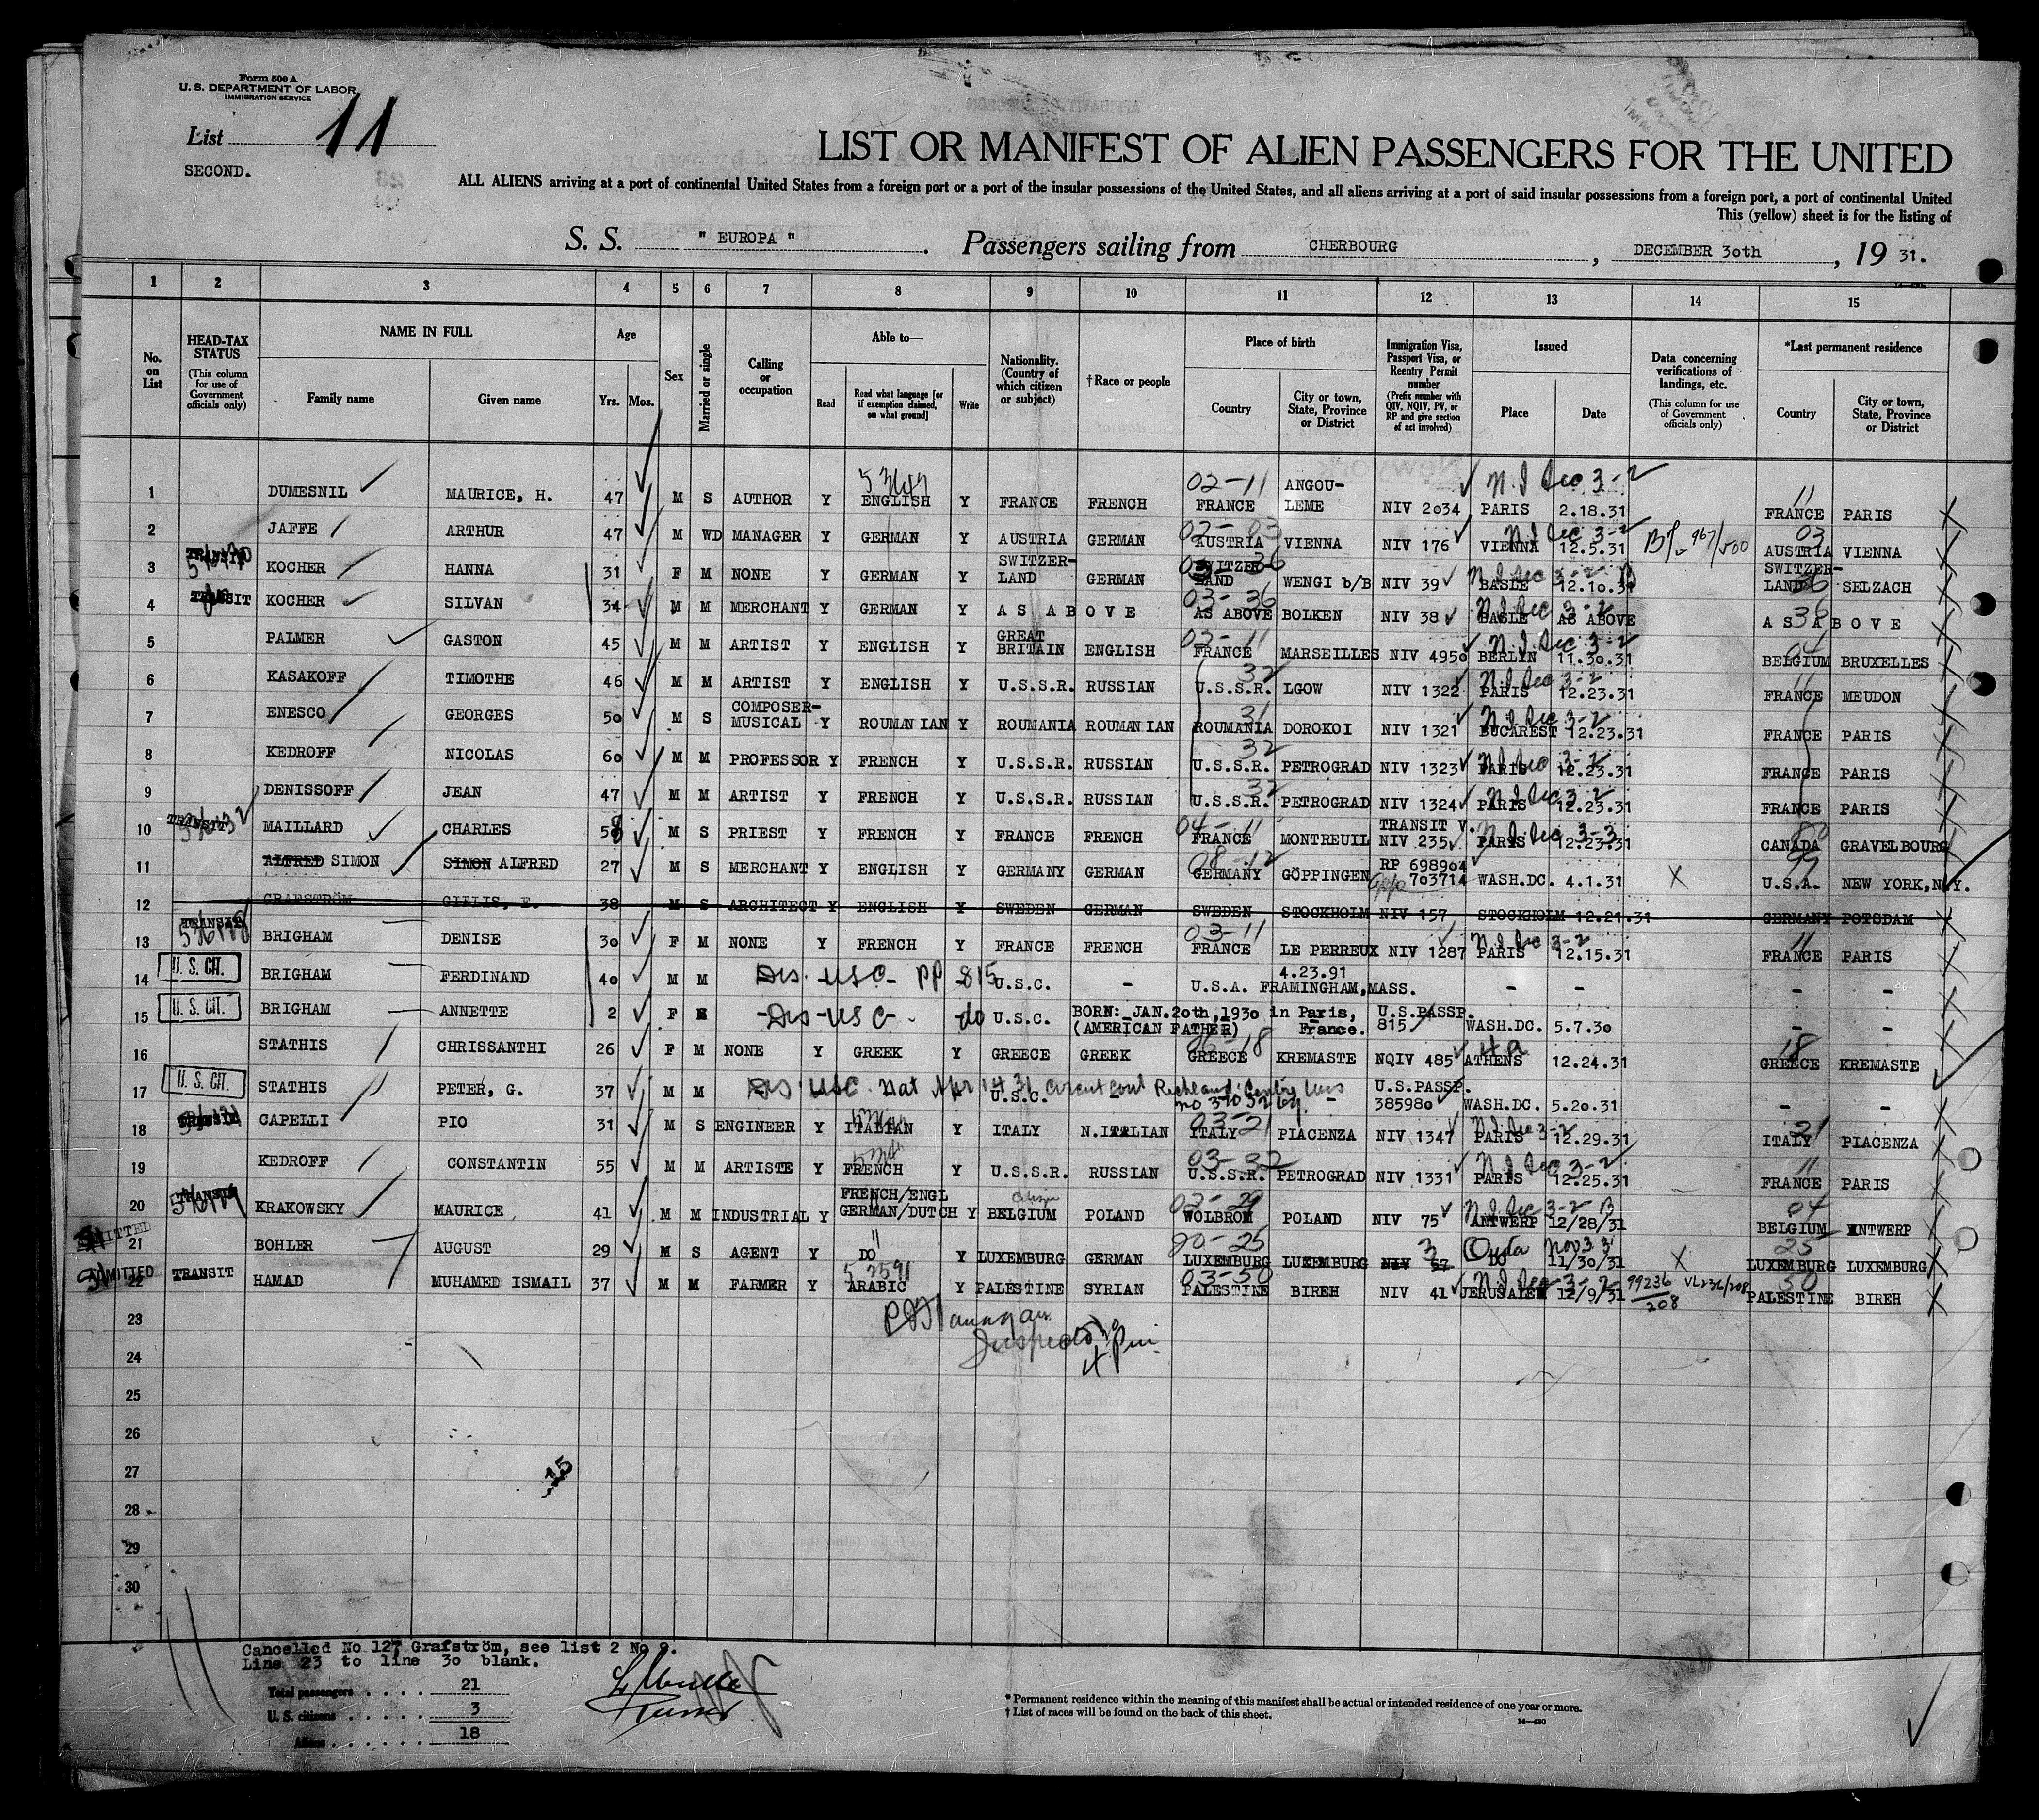 Form 500 A
U. S. DEPARTMENT OF LABOR
IMMIGRATION SERVICE
List 11
SECOND.
LIST OR MANIFEST OF ALIEN PASSENGERS FOR THE UNITED
ALL ALIENS arriving at a port of continental United States from a foreign port or a port of the insular possessions of the United States, and all aliens arriving at a port of said insular possessions from a foreign port, a port of continental United
This (yellow) sheet is for the listing of
S. S. " EUROPA " . Passengers sailing from CHERBOURG , DECEMBER 30th , 19 31.
1 2 3 4 5 6 7 8 9 10 11 12 13 14 15
No. on List
HEAD-TAX STATUS (This column for use of Government officials only)
NAME IN FULL Family name Given name
Age Yrs. Mos.
Sex
Married or single
Calling or occupation
Able to— Read Read what language [or if exemption claimed, on what ground] Write
Nationality. (Country of which citizen or subject)
†Race or people
Place of birth Country City or town, State, Province or District
Immigration Visa, Passport Visa, or Reentry Permit number (Prefix number with QIV, NQIV, PV, or RP and give section of act involved)
Issued Place Date
Data concerning verifications of landings, etc. (This column for use of Government officials only)
*Last permanent residence Country City or town, State, Province or District
1 DUMESNIL MAURICE, H. 47 M S AUTHOR Y ENGLISH Y FRANCE FRENCH 02-11 FRANCE ANGOU-LEME NIV 2034 PARIS 2.18.31 11 FRANCE PARIS
2 JAFFE ARTHUR 47 M WD MANAGER Y GERMAN Y AUSTRIA GERMAN 02-03 AUSTRIA VIENNA NIV 176 VIENNA 12.5.31 03 AUSTRIA VIENNA
3 TRANSIT KOCHER HANNA 31 F M NONE Y GERMAN Y SWITZER-LAND GERMAN 03-36 SWITZER-LAND WENGI b/B NIV 39 BASLE 12.10.31 SWITZER-LAND 36 SELZACH
4 TRANSIT KOCHER SILVAN 34 M M MERCHANT Y GERMAN Y AS ABOVE 03-36 AS ABOVE BOLKEN NIV 38 BASLE AS ABOVE 36 AS ABOVE
5 PALMER GASTON 45 M M ARTIST Y ENGLISH Y GREAT BRITAIN ENGLISH 03-11 FRANCE MARSEILLES NIV 4950 BERLIN 11.30.31 04 BELGIUM BRUXELLES
6 KASAKOFF TIMOTHE 46 M M ARTIST Y ENGLISH Y U.S.S.R. RUSSIAN 32 U.S.S.R. LGOW NIV 1322 PARIS 12.23.31 11 FRANCE MEUDON
7 ENESCO GEORGES 50 M S COMPOSER-MUSICAL Y ROUMANIAN Y ROUMANIA ROUMANIAN 31 ROUMANIA DOROKOI NIV 1321 BUCAREST 12.23.31 FRANCE PARIS
8 KEDROFF NICOLAS 60 M M PROFESSOR Y FRENCH Y U.S.S.R. RUSSIAN 32 U.S.S.R. PETROGRAD NIV 1323 PARIS 12.23.31 FRANCE PARIS
9 DENISSOFF JEAN 47 M M ARTIST Y FRENCH Y U.S.S.R. RUSSIAN 32 U.S.S.R. PETROGRAD NIV 1324 PARIS 12.23.31 FRANCE PARIS
10 TRANSIT MAILLARD CHARLES 58 M S PRIEST Y FRENCH Y FRANCE FRENCH 04-11 FRANCE MONTREUIL TRANSIT V. NIV 235 PARIS 12.23.31 CANADA GRAVELBOURG
11 ALFRED SIMON SIMON ALFRED 27 M S MERCHANT Y ENGLISH Y GERMANY GERMAN 08-12 GERMANY GÖPPINGEN RP 698904 703714 WASH.DC. 4.1.31 X 99 U.S.A. NEW YORK,N.Y.
12 GRAFSTRÖM GILLIS, E. 38 M S ARCHITECT Y ENGLISH Y SWEDEN GERMAN SWEDEN STOCKHOLM NIV 157 STOCKHOLM 12.21.31 GERMANY POTSDAM
13 TRANSIT BRIGHAM DENISE 30 F M NONE Y FRENCH Y FRANCE FRENCH 03-11 FRANCE LE PERREUX NIV 1287 PARIS 12.15.31 11 FRANCE PARIS
14 U. S. CIT. BRIGHAM FERDINAND 40 M M Dis. USC- PP 815 U.S.C. - U.S.A. 4.23.91 FRAMINGHAM, MASS. - - - -
15 U. S. CIT. BRIGHAM ANNETTE 2 F -Dis-USC- do U.S.C. BORN: JAN.20th,1930 in Paris, France. (AMERICAN FATHER) U.S.PASSP. 815 WASH.DC. 5.7.30 - -
16 STATHIS CHRISSANTHI 26 F M NONE Y GREEK Y GREECE GREEK GREECE KREMASTE NQIV 485 4a ATHENS 12.24.31 18 GREECE KREMASTE
17 U. S. CIT. STATHIS PETER, G. 37 M M Dis USC Nat Apr U.S.C. - U.S.PASSP. 385980 WASH.DC. 5.20.31 - -
18 TRANSIT CAPELLI PIO 31 M S ENGINEER Y ITALIAN Y ITALY N.ITALIAN 03-21 ITALY PIACENZA NIV 1347 PARIS 12.29.31 21 ITALY PIACENZA
19 KEDROFF CONSTANTIN 55 M M ARTISTE Y FRENCH Y U.S.S.R. RUSSIAN 03-32 U.S.S.R. PETROGRAD NIV 1331 PARIS 12.25.31 11 FRANCE PARIS
20 TRANSIT KRAKOWSKY MAURICE 41 M M INDUSTRIAL Y FRENCH/ENGL GERMAN/DUTCH Y BELGIUM POLAND WOLBROM POLAND NIV 75 ANTWERP 12/28/31 04 BELGIUM ANTWERP
21 ADMITTED BOHLER AUGUST 29 M S AGENT Y DO Y LUXEMBURG GERMAN LUXEMBURG LUXEMBURG NIV 57 3 DO 11/30/31 X 25 LUXEMBURG LUXEMBURG
22 ADMITTED TRANSIT HAMAD MUHAMED ISMAIL 37 M M FARMER Y ARABIC Y PALESTINE SYRIAN 03-50 PALESTINE BIREH NIV 41 JERUSALEM 12/9/31 99236/208 50 PALESTINE BIREH
23
24
25
26
27
28
29
30
15
Cancelled No 12, Grafström, see list 2 No 9.
Line 23 to line 30 blank.
Total passengers . . . . 21
U. S. citizens . . . . . 3
Aliens . . . . . . 18
* Permanent residence within the meaning of this manifest shall be actual or intended residence of one year or more.
† List of races will be found on the back of this sheet.
14—430